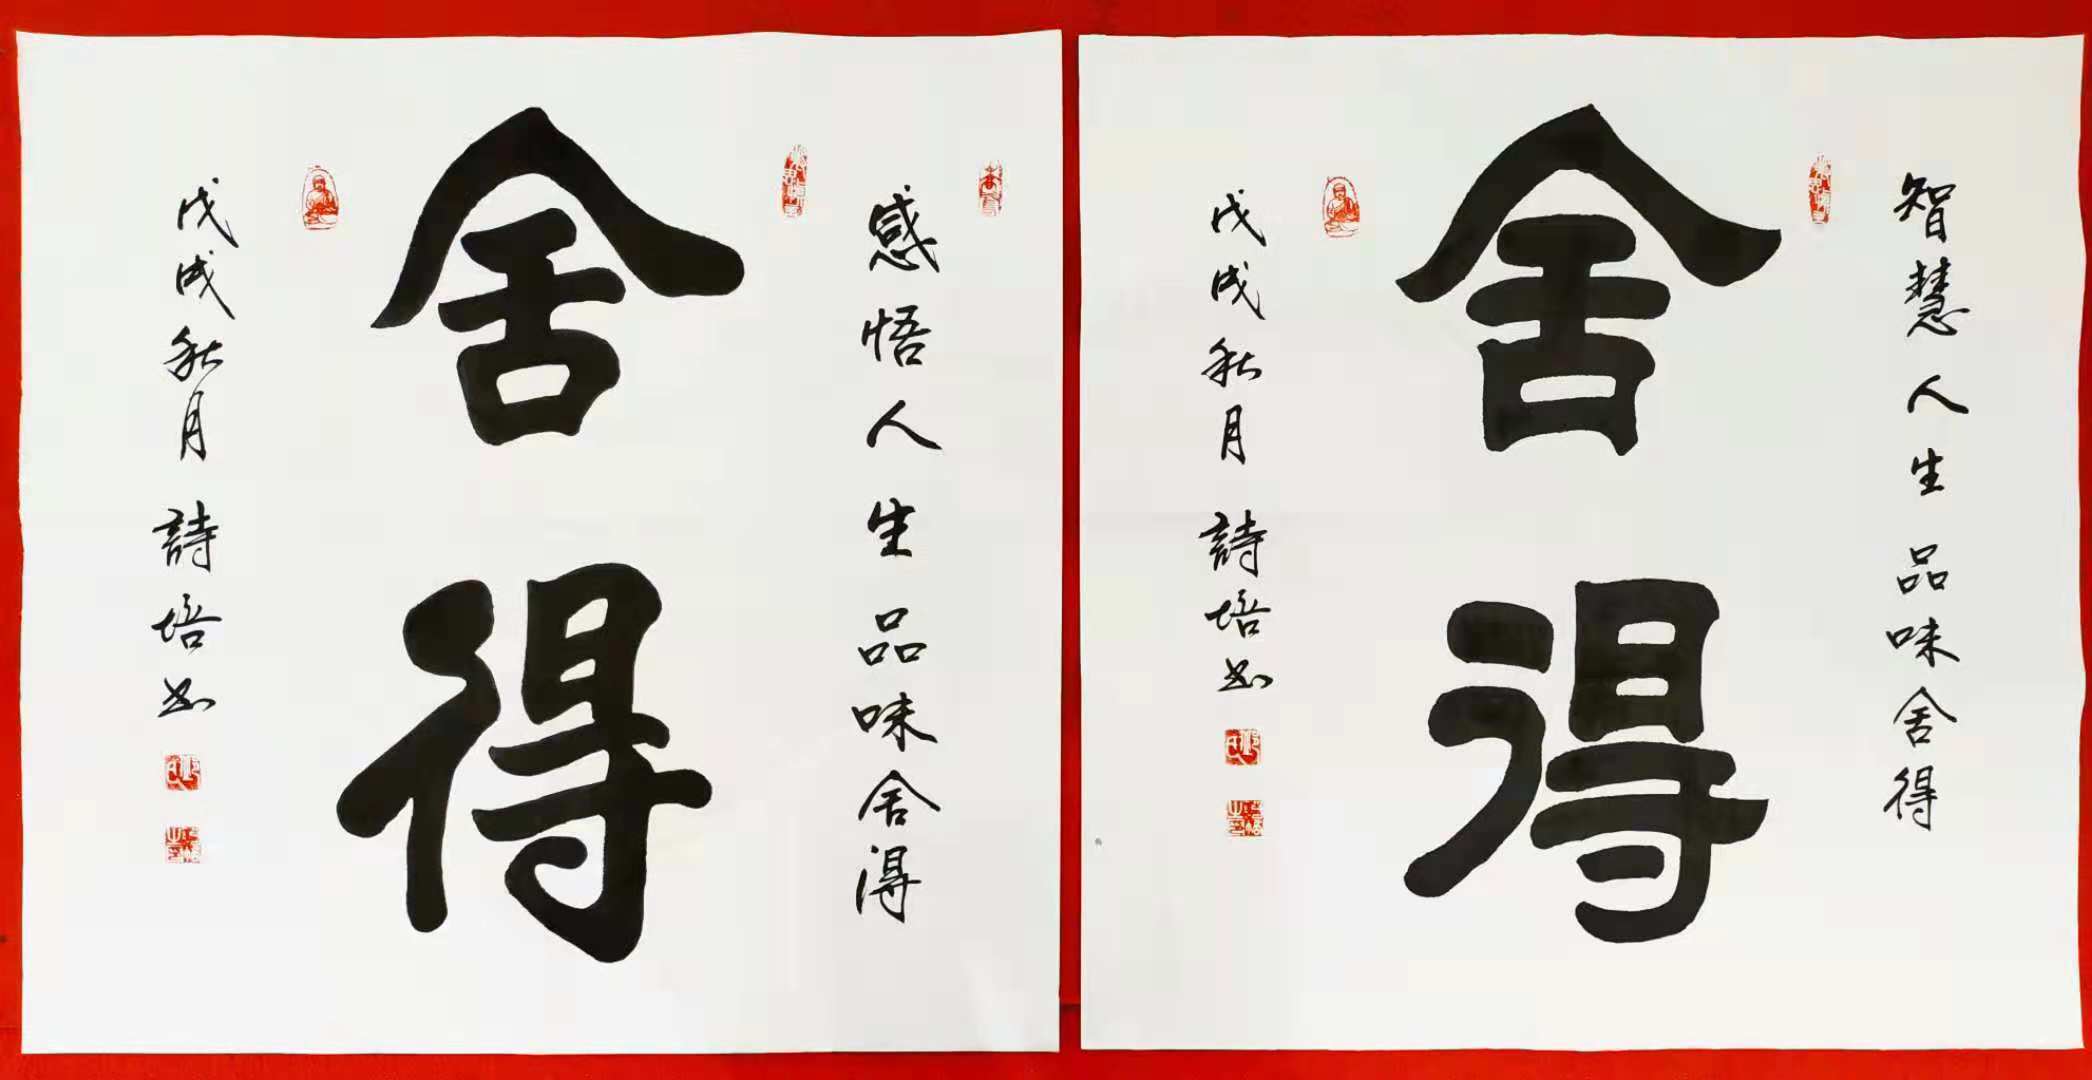 智慧人生品味舍得
舍得
戊戌秋月詩培书
感悟人生品味舍得
舍得
戊戌秋月詩培书